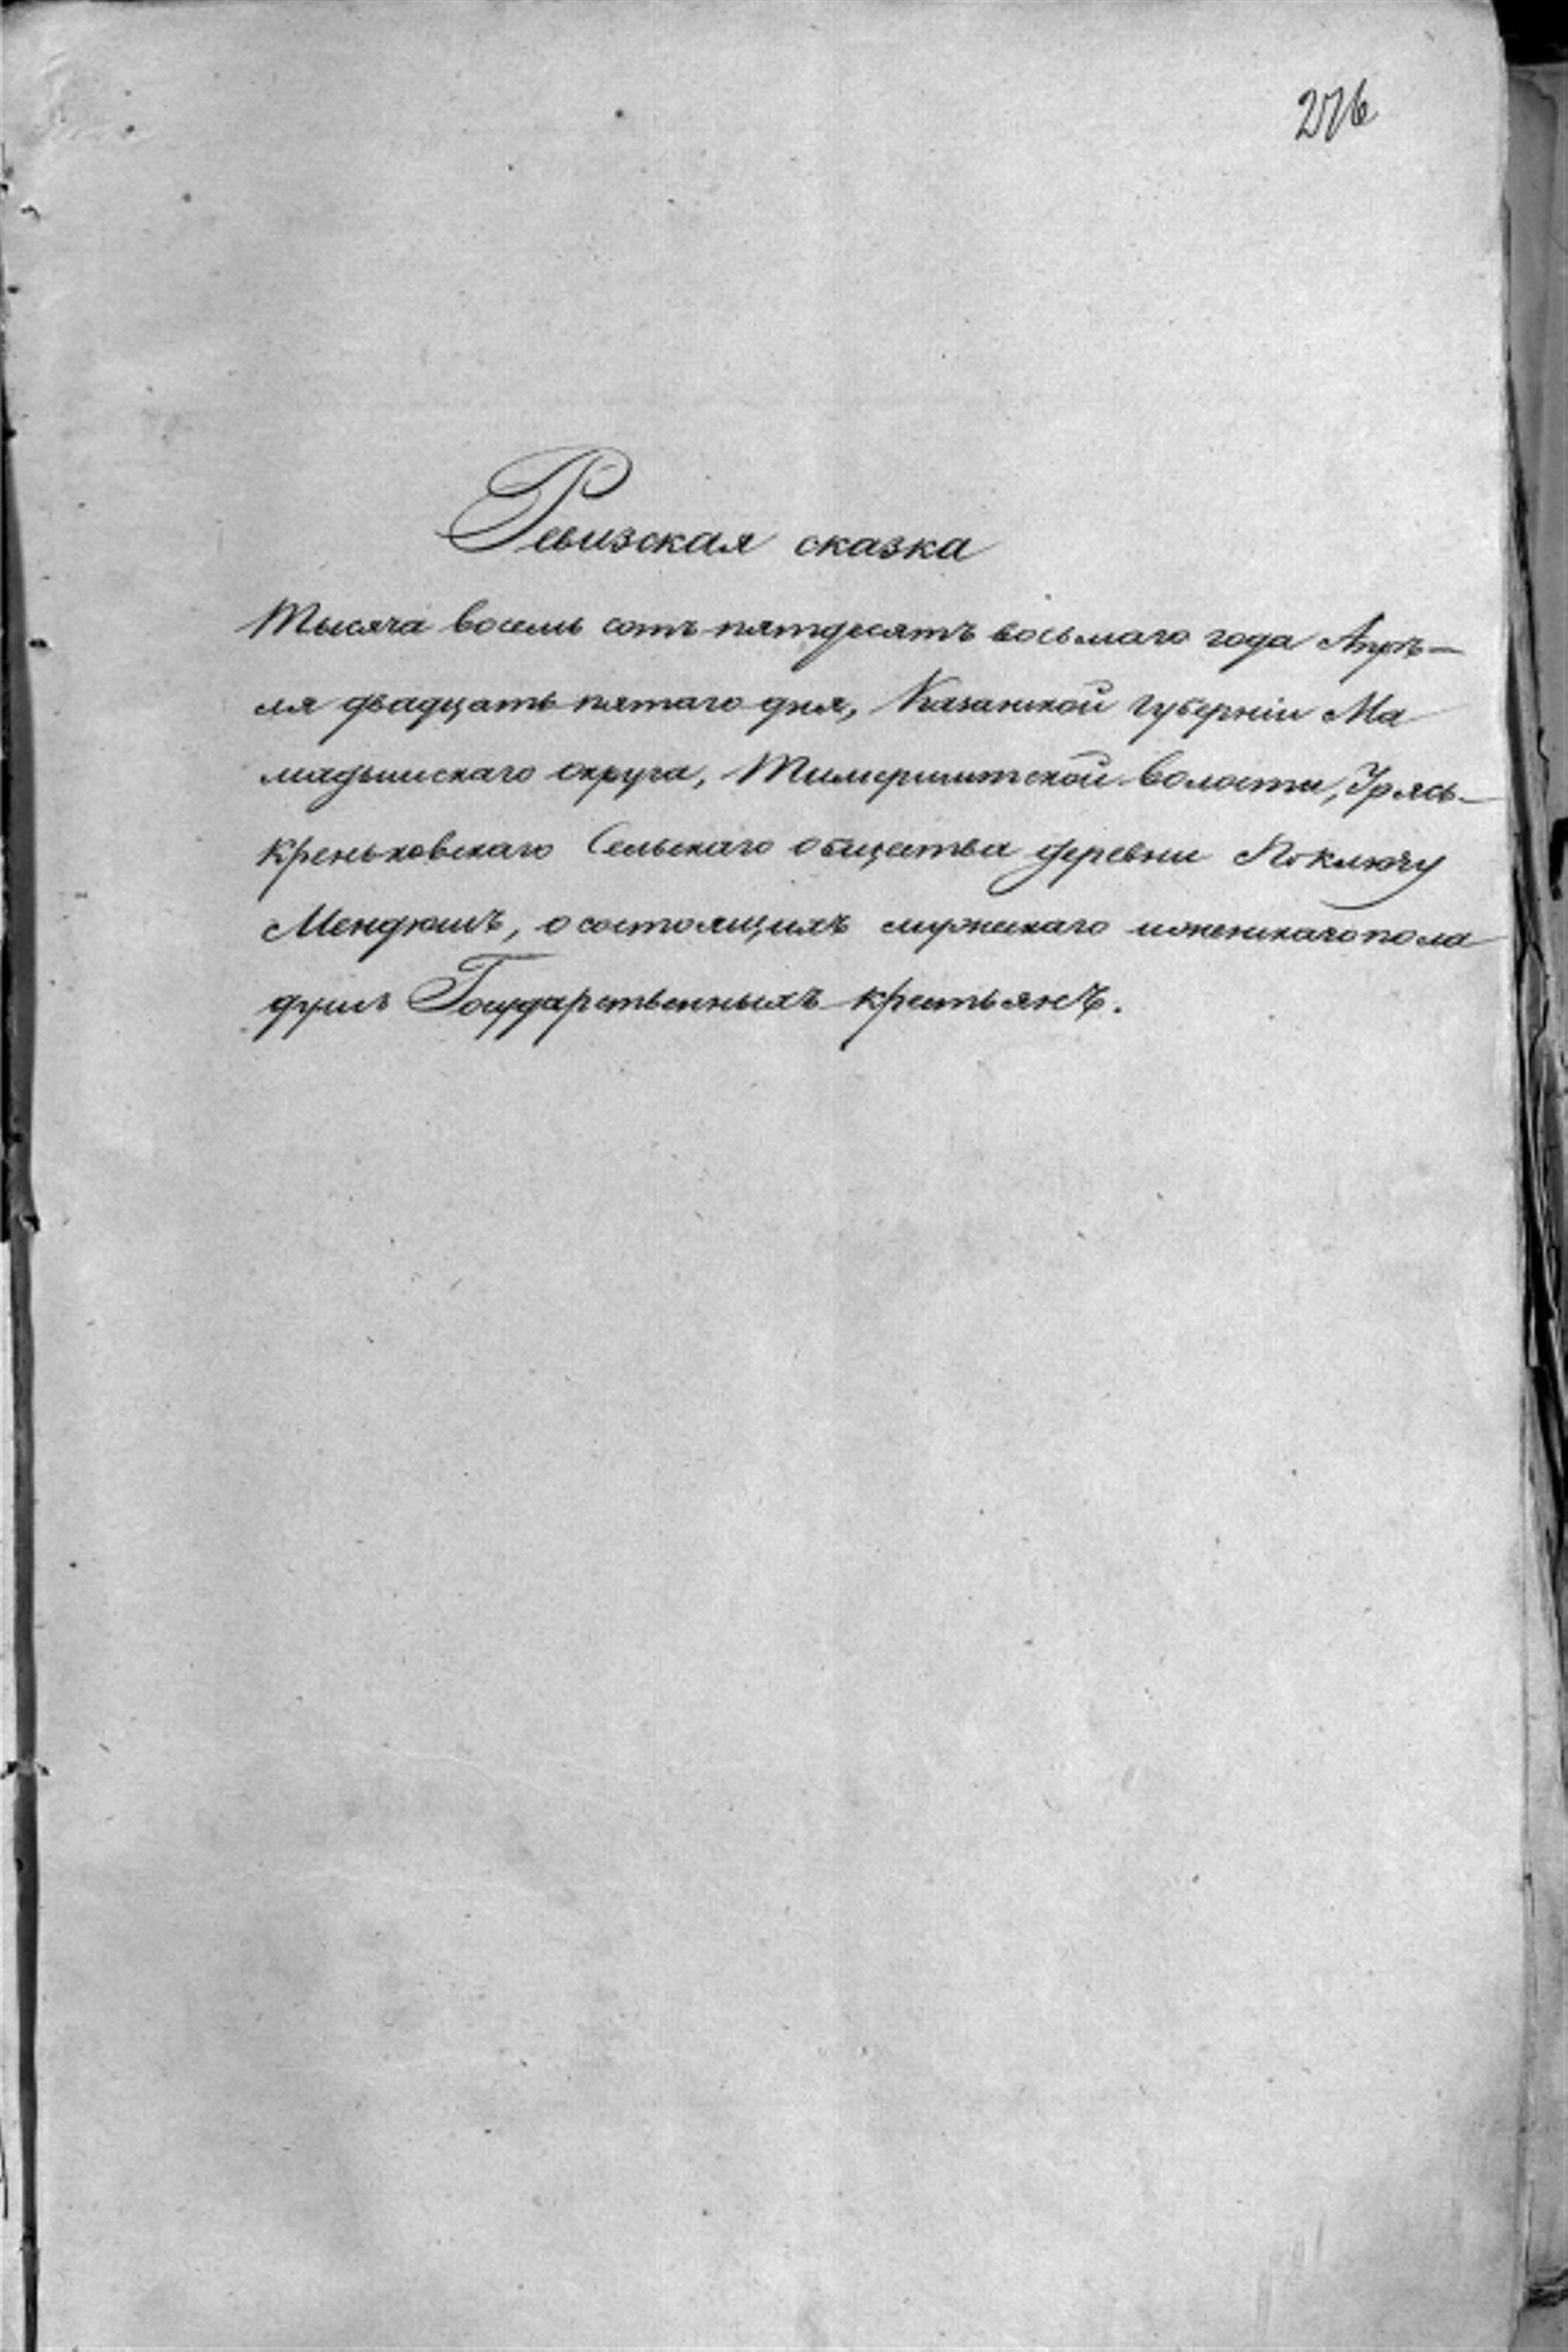 276
Ревизская сказка
Тысяча восемь сотъ пятдесятъ восьмаго года Апрѣ-
ля двадцать пятаго дня, Казанской губерніи Ма
мадышскаго округа, Тимершитской волости, Урясь-
креньковскаго Сельскаго общества деревни Поключу
Мендюшъ, о состоящихъ мужескаго и женскаго пола
душъ Государственныхъ крестьянъ.